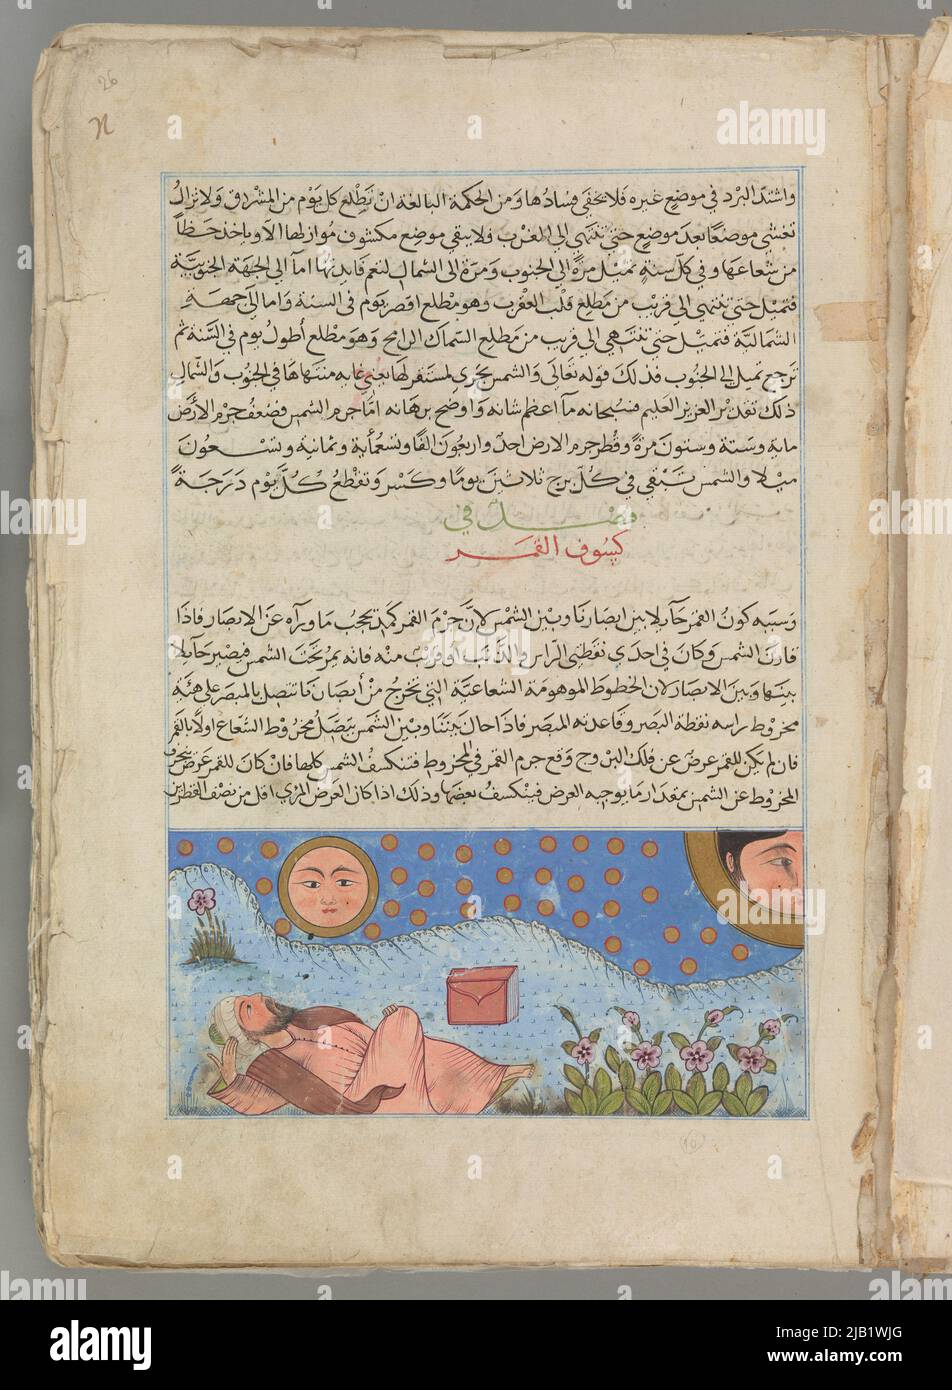 26
واشتدّ البرد في موضع غيره فلا يخفى فسادها ومن الحكمة البالغة ان تطلع كل يوم من المشراق ولا تزال
تغشي موضعا بعد موضع حتى تنتهي الى الغرب فلا يبقى موضع مكشوف مواز لها الا وياخذ حظاً
من شعاعها وفي كل سنة تميل مرة الى الجنوب ومرة الى الشمال لتعم فايدتها اما الى الجهة الجنوبية
فتميل حتى تنتهي الى قريب من مطلع قلب العقرب وهو مطلع اقصر يوم في السنة واما الى جهة
الشمالية فتميل حتى تنتهي الى قريب من مطلع السماك الرامح وهو مطلع أطول يوم في السنة ثم
ترجع تميل الى الجنوب فذلك قوله تعالى والشمس تجري لمستقر لها يعني غاية منتهاها في الجنوب والشمال
ذلك تقدير العزيز العليم فسبحانه ما اعظم شانه واوضح برهانه امّا جرم الشمس فضعف جرم الأرض
ماية وستة وستون مرة وقطر جرم الارض احد واربعون الفا وتسعمأية وثمانية وتسعون
ميلا والشمس تبقى في كل برج ثلاثين يوما وكسر وتقطع كل يوم درجة
فصل في
كسوف القمر
وسببه كون القمر حايلا بين ابصارنا وبين الشمس لان جرم القمر كمد يحجب ما وراه عن الابصار فاذا
قارن الشمس وكان في احدى نقطتي الراس والذنب او قريب منه فانه يمر تحت الشمس فيصير حايلا
بينها وبين الابصار لان الخطوط الموهومة الشعاعية التي تخرج من أبصارنا تتصل بالمبصر على هيئة
مخروط راسه نقطة البصر وقاعدته المبصر فاذا حال بيننا وبين الشمس يتصل مخروط الشعاع اولا بالقمر
فان لم يكن للقمر عرض عن فلك البروج وقع جرم القمر في المخروط فتنكسف الشمس كلها فان كان للقمر عرض ينحرف
المخروط عن الشمس بمقدار ما يوجبه العرض فينكسف بعضها وذلك اذا كان العرض المرئي اقل من نصف القطرين
10
alamy
alamy
Image ID: 2JB1WJG
www.alamy.com